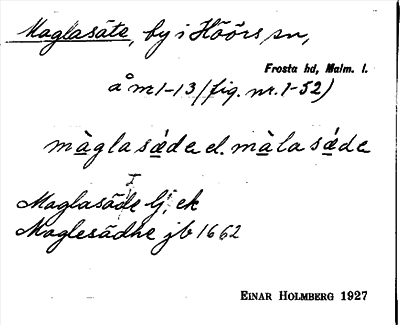 Maglasäte, by i Höörs sn,
Frosta hd, Malm. l.
å m 1-13 (fig. nr. 1-52)
màglasǽde el. màlasǽde
Maglasäde lj. ek
Maglesädhe jb 1662
EINAR HOLMBERG 1927